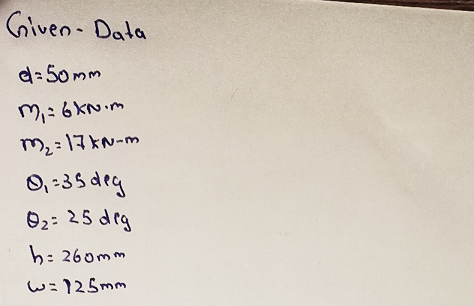 Given - Data
d=50mm
m₁=6kN.m
m₂=17kN-m
θ₁=35 deg
θ₂= 25 deg
h=260mm
w=125mm